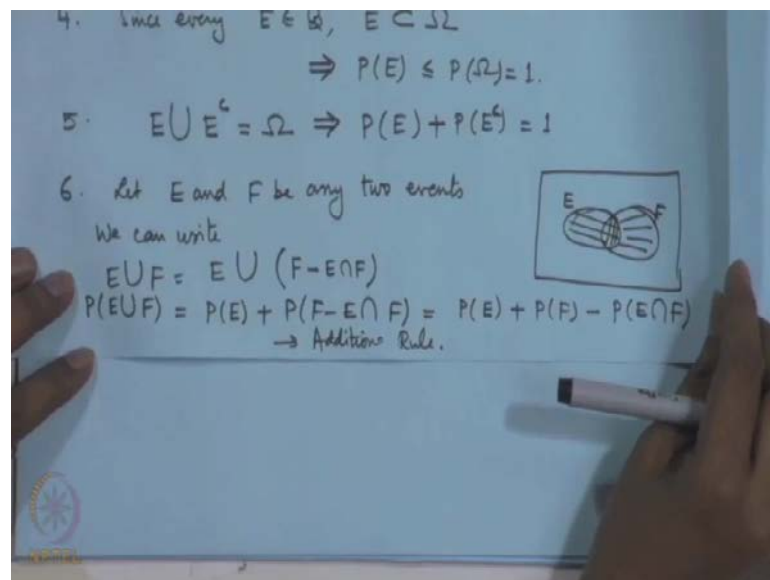 4. Since every E ∈ 𝓑, E ⊂ Ω
⇒ P(E) ≤ P(Ω) = 1.
5. E ∪ Eᶜ = Ω ⇒ P(E) + P(Eᶜ) = 1
6. Let E and F be any two events
We can write
E F
E ∪ F = E ∪ (F - E ∩ F)
P(E ∪ F) = P(E) + P(F - E ∩ F) = P(E) + P(F) - P(E ∩ F)
→ Addition Rule.
NPTEL